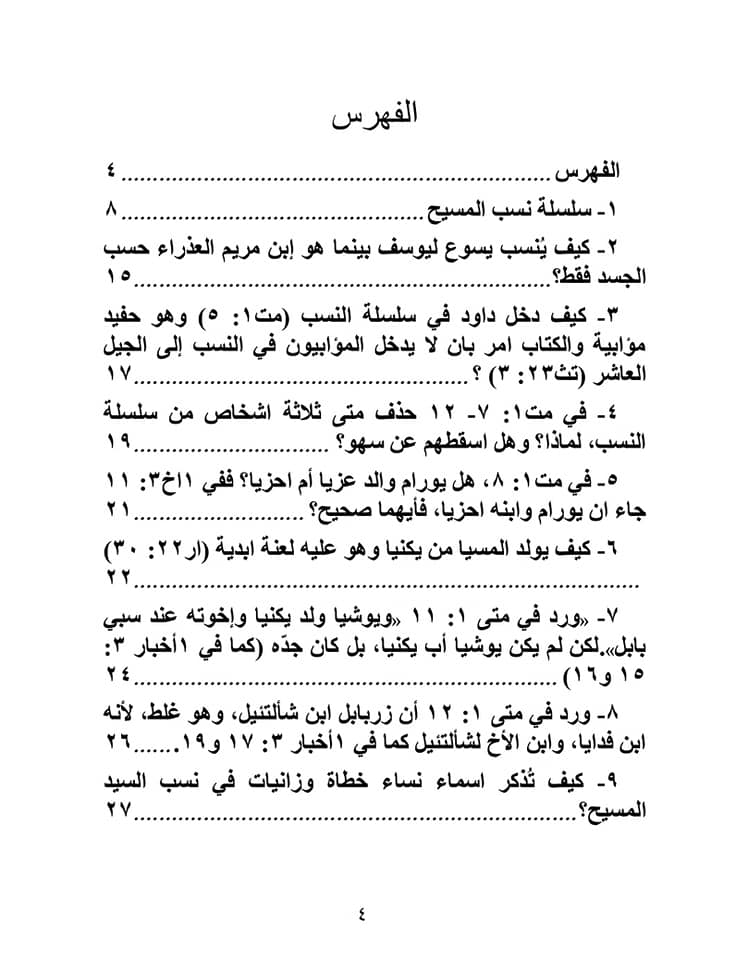 الفهرس
الفهرس .................................................................... ٤
١- سلسلة نسب المسيح ................................................ ٨
٢- كيف يُنسب يسوع ليوسف بينما هو إبن مريم العذراء حسب
الجسد فقط؟ .................................................................. ١٥
٣- كيف دخل داود في سلسلة النسب (مت١: ٥) وهو حفيد
مؤابية والكتاب امر بان لا يدخل المؤابيون في النسب إلى الجيل
العاشر (تث٢٣: ٣) ؟ ..................................................... ١٧
٤- في مت١: ٧- ١٢ حذف متى ثلاثة اشخاص من سلسلة
النسب، لماذا؟ وهل اسقطهم عن سهو؟ ............................... ١٩
٥- في مت١: ٨، هل يورام والد عزيا أم احزيا؟ ففي ١اخ٣: ١١
جاء ان يورام وابنه احزيا، فأيهما صحيح؟ ........................... ٢١
٦- كيف يولد المسيا من يكنيا وهو عليه لعنة ابدية (ار٢٢: ٣٠)
................................................................................ ٢٢
٧- «ورد في متى ١: ١١ «ويوشيا ولد يكنيا وإخوته عند سبي
بابل».لكن لم يكن يوشيا أب يكنيا، بل كان جدّه (كما في ١أخبار ٣:
١٥ و١٦) .................................................................... ٢٤
٨- ورد في متى ١: ١٢ أن زربابل ابن شألتئيل، وهو غلط، لأنه
ابن فدايا، وابن الأخ لشألتئيل كما في ١أخبار ٣: ١٧ و١٩. ...... ٢٦
٩- كيف تُذكر اسماء نساء خطاة وزانيات في نسب السيد
المسيح؟ ...................................................................... ٢٧
٤